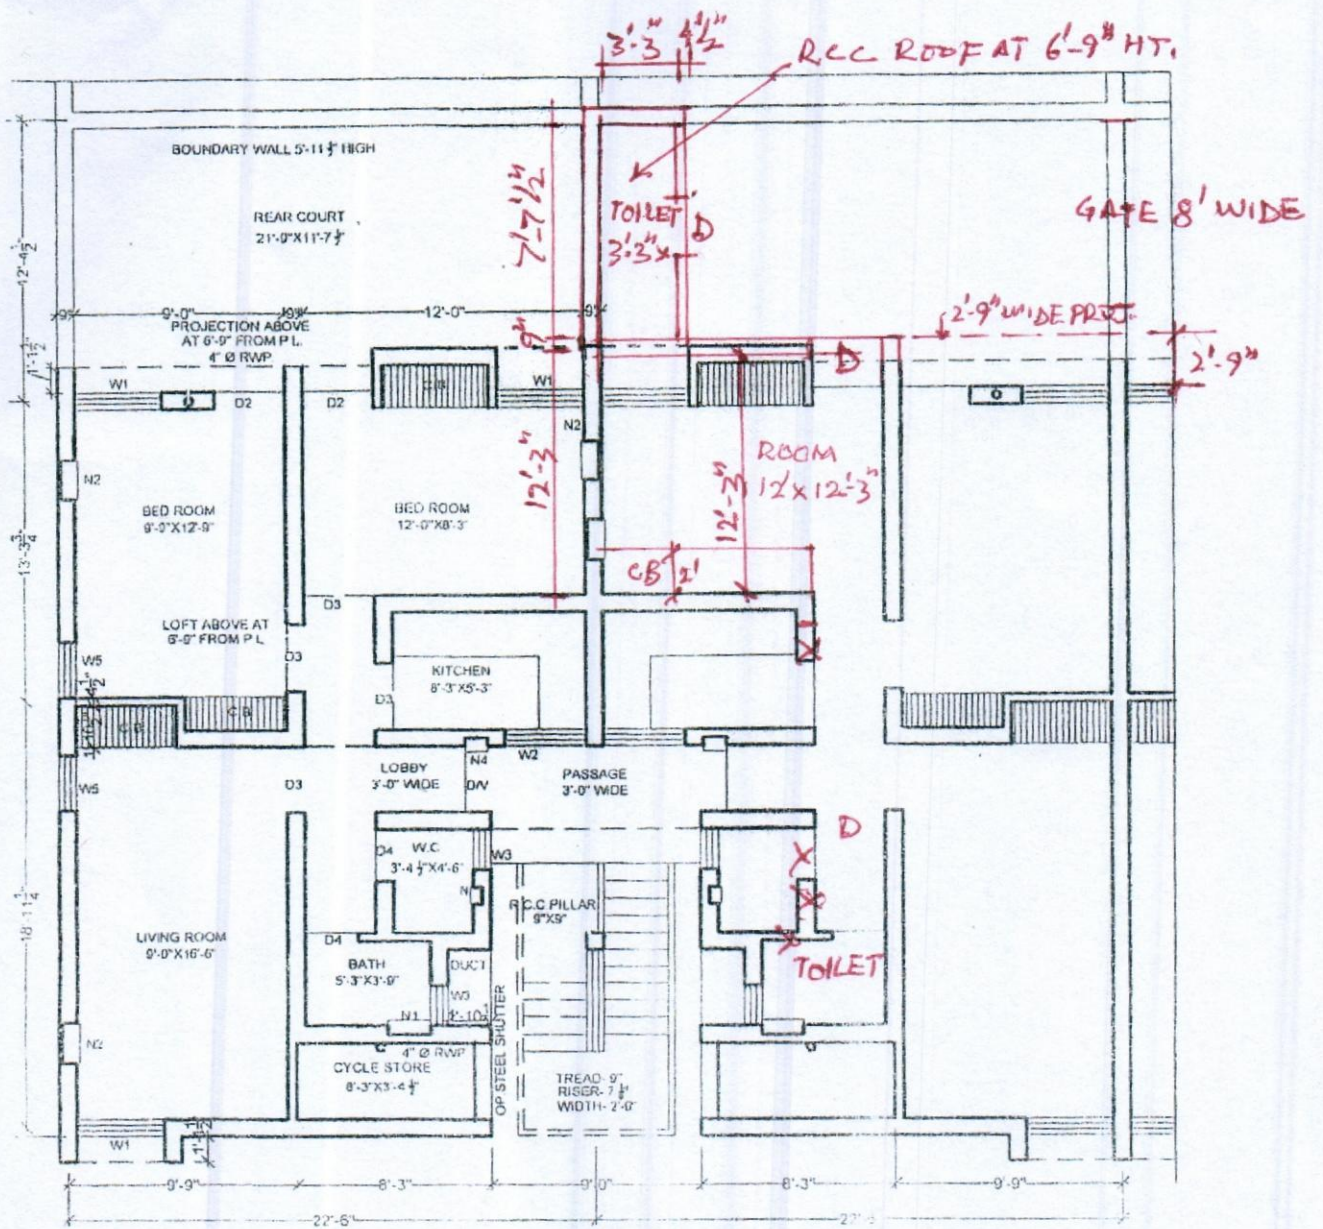 3'-3" 4½"
R.C.C ROOF AT 6'-9" HT.
BOUNDARY WALL 5'-11¾" HIGH
REAR COURT
21'-9"X11'-7½"
7'-7½"
TOILET
3'-3"x
D
GATE 8' WIDE
12'-4½"
9"
9'-0"
9"
12'-0"
9"
PROJECTION ABOVE
AT 6'-9" FROM P.L.
4" Ø RWP
2'-9" WIDE PROJ.
2'-9"
9"
D
1'-1½"
W1
D2
D2
C.B
W1
N2
12'-3"
12'-3"
ROOM
12'x12'-3"
N2
BED ROOM
9'-0"X12'-9"
BED ROOM
12'-0"X8'-3"
13'-3¾"
CB 2'
D3
LOFT ABOVE AT
6'-9" FROM P L
W5
D3
KITCHEN
8'-3"X5'-3"
D3
X
4½"
C B
C B
W2
N4
LOBBY
3'-0" WIDE
D/V
PASSAGE
3'-0" WIDE
W5
D3
D
D4
W.C
3'-4½"X4'-6"
W3
X
X
N
R.C.C PILLAR
9"X9"
18'-1¼"
LIVING ROOM
9'-0"X16'-6"
D4
BATH
5'-3"X3'-9"
DUCT
X
TOILET
W3
N1
1'-10½"
N2
4" Ø RWP
CYCLE STORE
8'-3"X3'-4½"
OP STEEL SHUTTER
TREAD- 9"
RISER- 7½"
WIDTH- 2'-9"
W1
1'-1½"
9'-9"
8'-3"
9'-0"
8'-3"
9'-9"
22'-6"